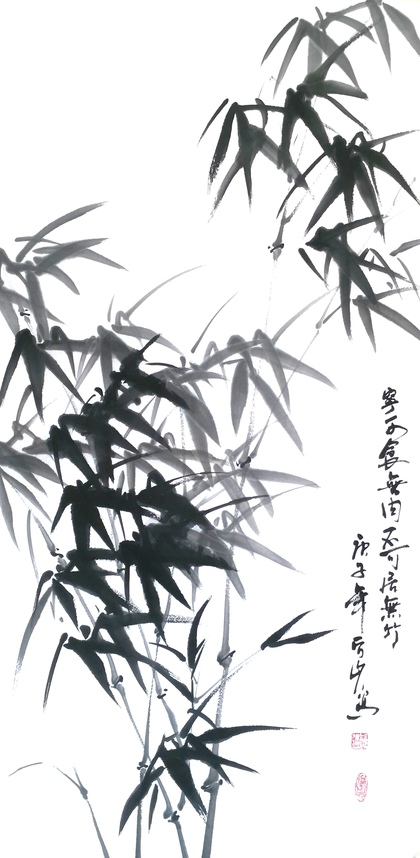 寧可食無肉不可居無竹
庚子年